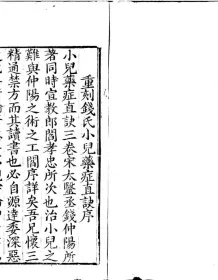 重刻錢氏小兒藥症直訣序
小兒藥症直訣三卷宋太醫丞錢仲陽所
著同時宣敎郎閻孝忠所次也治小兒之
難與仲陽之術之工閻序詳矣吾兄懷三
精通禁方而其讀書也必自源達委深惡